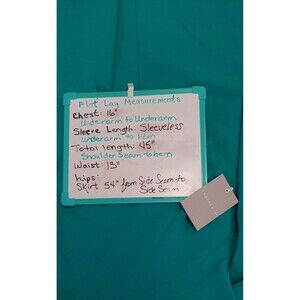 Flat Lay Measurements
Chest: 16"
Underarm to Underarm
Sleeve Length: Sleeveless
underarm to hem
Total length: 45"
Shoulder Seam to hem
Waist: 13"
hips:
Skirt 54" from Side Seam to
Side Seam